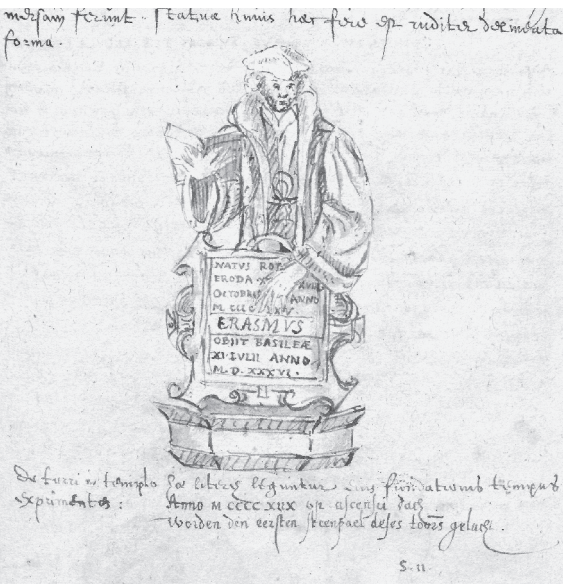 mersam ferunt. Statuæ huius hæc fere est ruditer delineata
forma.
NATVS ROT
ERODA XXVIII
OCTOBRIS ANNO
M CCCC LXV.
ERASMVS
OBIIT BASILEÆ
XI·IVLII ANNO
M·D·XXXVI·
De turri templo hæ literæ leguntur eius fundationis tempus
exprimentes: Anno M CCCC XLIX op ascensi dach
worden den eersten steen des toorn gelacht.
S.11